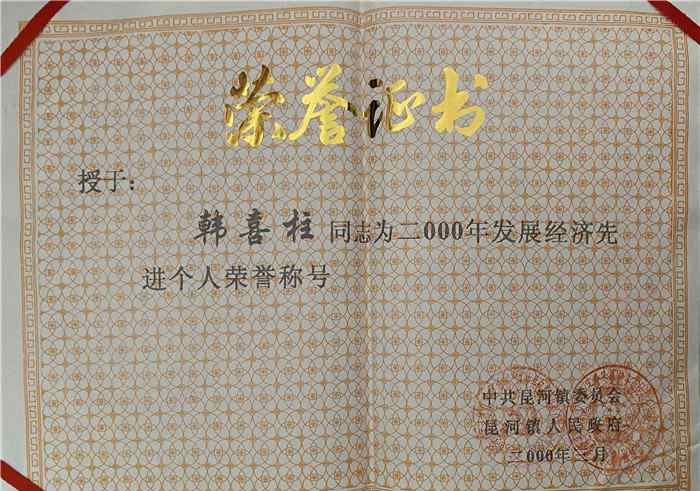 荣誉证书
授于:
韩喜柱同志为二000年发展经济先
进个人荣誉称号
中共昆河镇委员会
昆河镇人民政府
二000年三月